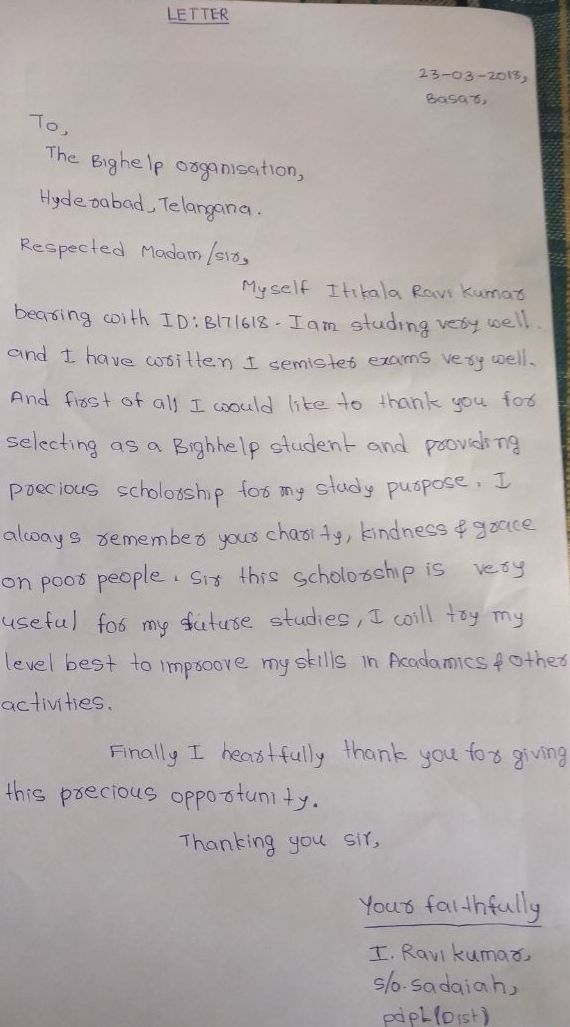 LETTER
23-03-2018,
Basar,
To,
The Bighelp organisation,
Hyderabad, Telangana.
Respected Madam/sir,
Myself Itikala Ravi Kumar
bearing with ID: B171618. I am studing very well.
and I have written I semister exams very well.
And first of all I would like to thank you for
selecting as a Bighhelp student and providing
precious scholorship for my study purpose. I
always remember your charity, kindness & grace
on poor people. Sir this scholorship is very
useful for my future studies, I will try my
level best to improove my skills in Acadamics & other
activities.
Finally I heartfully thank you for giving
this precious opportunity.
Thanking you sir,
Your faithfully
I. Ravi kumar,
s/o. sadaiah,
pdpl (Dist)